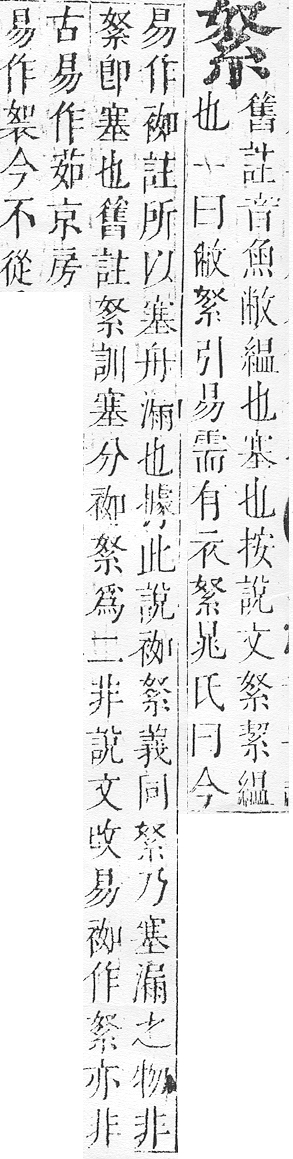 䋈
舊註音魚敝縕也塞也按說文䋈絜縕
也一曰敝絮引易需有衣䋈晁氏曰今
易作袽註所以塞舟漏也據此說袽䋈義同䋈乃塞漏之物非
䋈卽塞也舊註䋈訓塞分袽䋈爲二非說文改易袽作䋈亦非
古易作茹京房
易作今不從